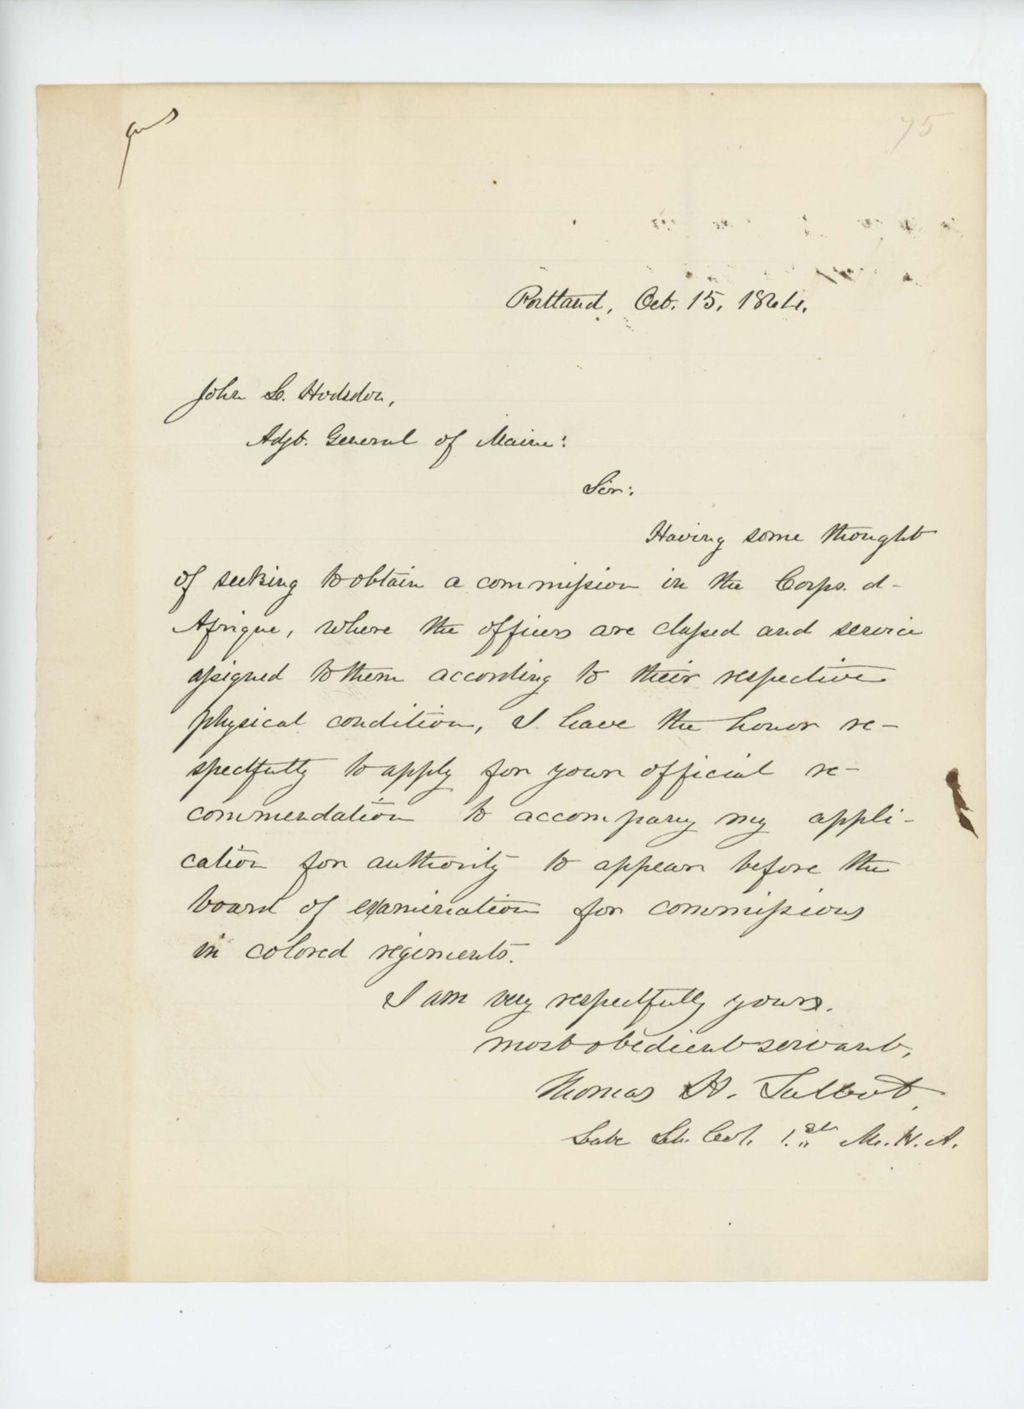 ans
75
Portland, Oct. 15, 1864.
John L. Hodsdon,
Adjt. General of Maine:
Sir:
Having some thought
of seeking to obtain a commission in the Corps. d-
Afrique, where the officers are classed and service
assigned to them according to their respective
physical condition, I have the honor re-
spectfully to apply for your official re-
commendation to accompany my appli-
cation for authority to appear before the
board of examination for commissions
in colored regiments.
I am very respectfully yours.
most obedient servant,
Thomas H. Talbot,
Late Lt. Col. 1.st Me. H. A.